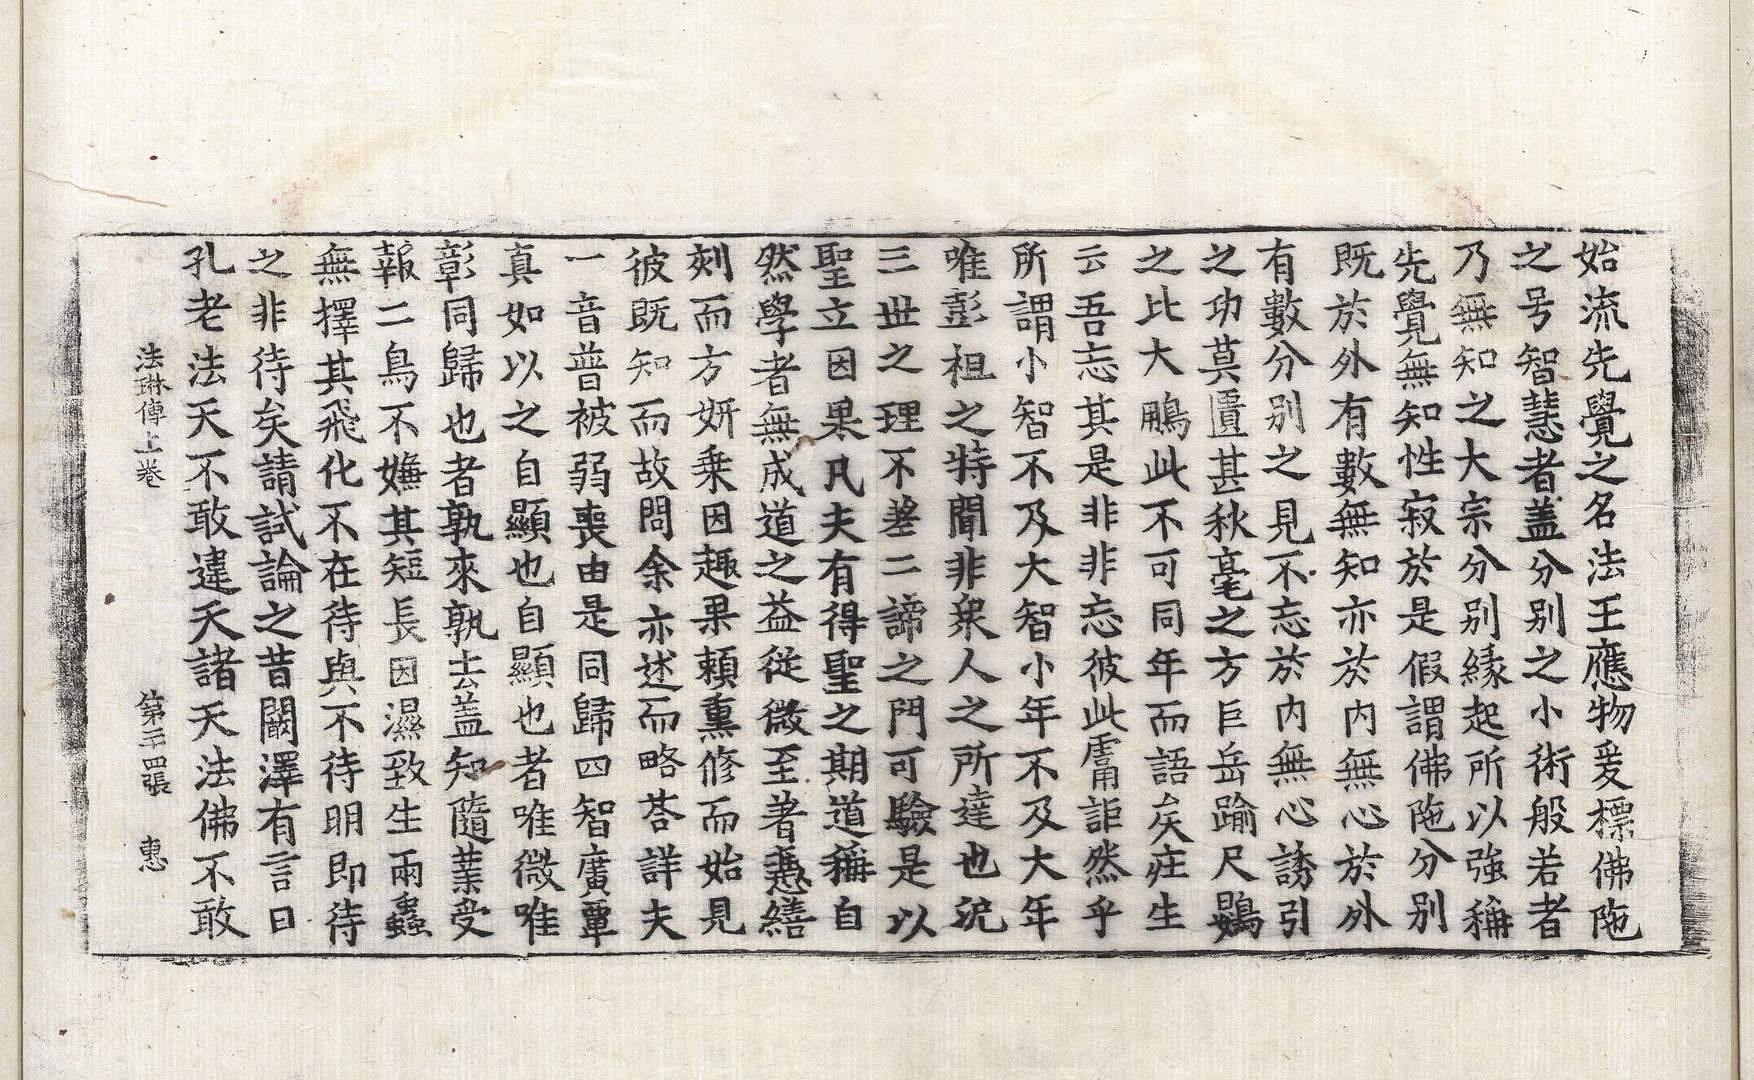 始流先覺之名法王應物爰標佛陁
之号智慧者盖分別之小術般若者
乃無知之大宗分別緣起所以強稱
先覺無知性寂於是假謂佛陁分別
既於外有數無知亦於內無心於外
有數分別之見不忘於內無心誘引
之功莫匱甚秋毫之方巨岳踰尺鷃
之比大鵬此不可同年而語矣莊生
云吾忘其是非非忘彼此庸詎然乎
所謂小智不及大智小年不及大年
唯彭祖之特聞非衆人之所達也說
三世之理不差二諦之門可驗是以
聖立因果凡夫有得聖之期道稱自
然學者無成道之益從微至著憑繕
剡而方妍乗因趣果頼熏修而始見
彼既知而故問余亦述而略荅詳夫
一音普被弱喪由是同歸四智廣覃
真如以之自顯也自顯也者唯微唯
彰同歸也者孰來孰去盖知隨業受
報二鳥不嫌其短長因濕致生兩蟲
無擇其飛化不在待與不待明即待
之非待矣請試論之昔闞澤有言曰
孔老法天不敢違天諸天法佛不敢
法琳傳上卷 第二十四張 惠